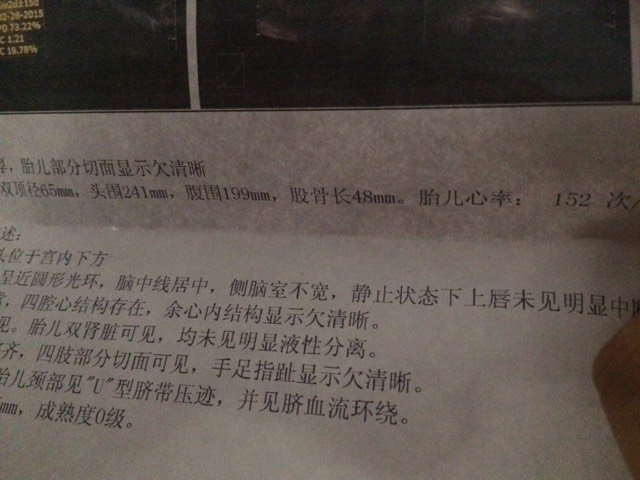 02-26-2015
73.22%
C 1.21
C 19.78%
，胎儿部分切面显示欠清晰
双顶径65mm，头围241mm，腹围199mm，股骨长48mm。胎儿心率： 152 次
述：
头位于宫内下方
呈近圆形光环，脑中线居中，侧脑室不宽，静止状态下上唇未见明显中断
，四腔心结构存在，余心内结构显示欠清晰。
见。胎儿双肾脏可见，均未见明显液性分离。
齐，四肢部分切面可见，手足指趾显示欠清晰。
胎儿颈部见"U"型脐带压迹，并见脐血流环绕。
mm，成熟度0级。